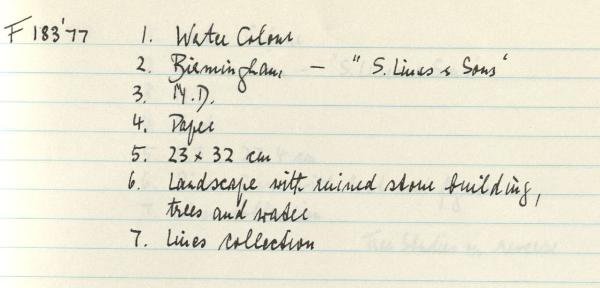 F 183'77 1. Water Colour
2. Birmingham — "S. Lines & Sons"
3. N.D.
4. Paper
5. 23 x 32 cm
6. Landscape with ruined stone building,
trees and water
7. Lines collection
Tree Studies on reverse